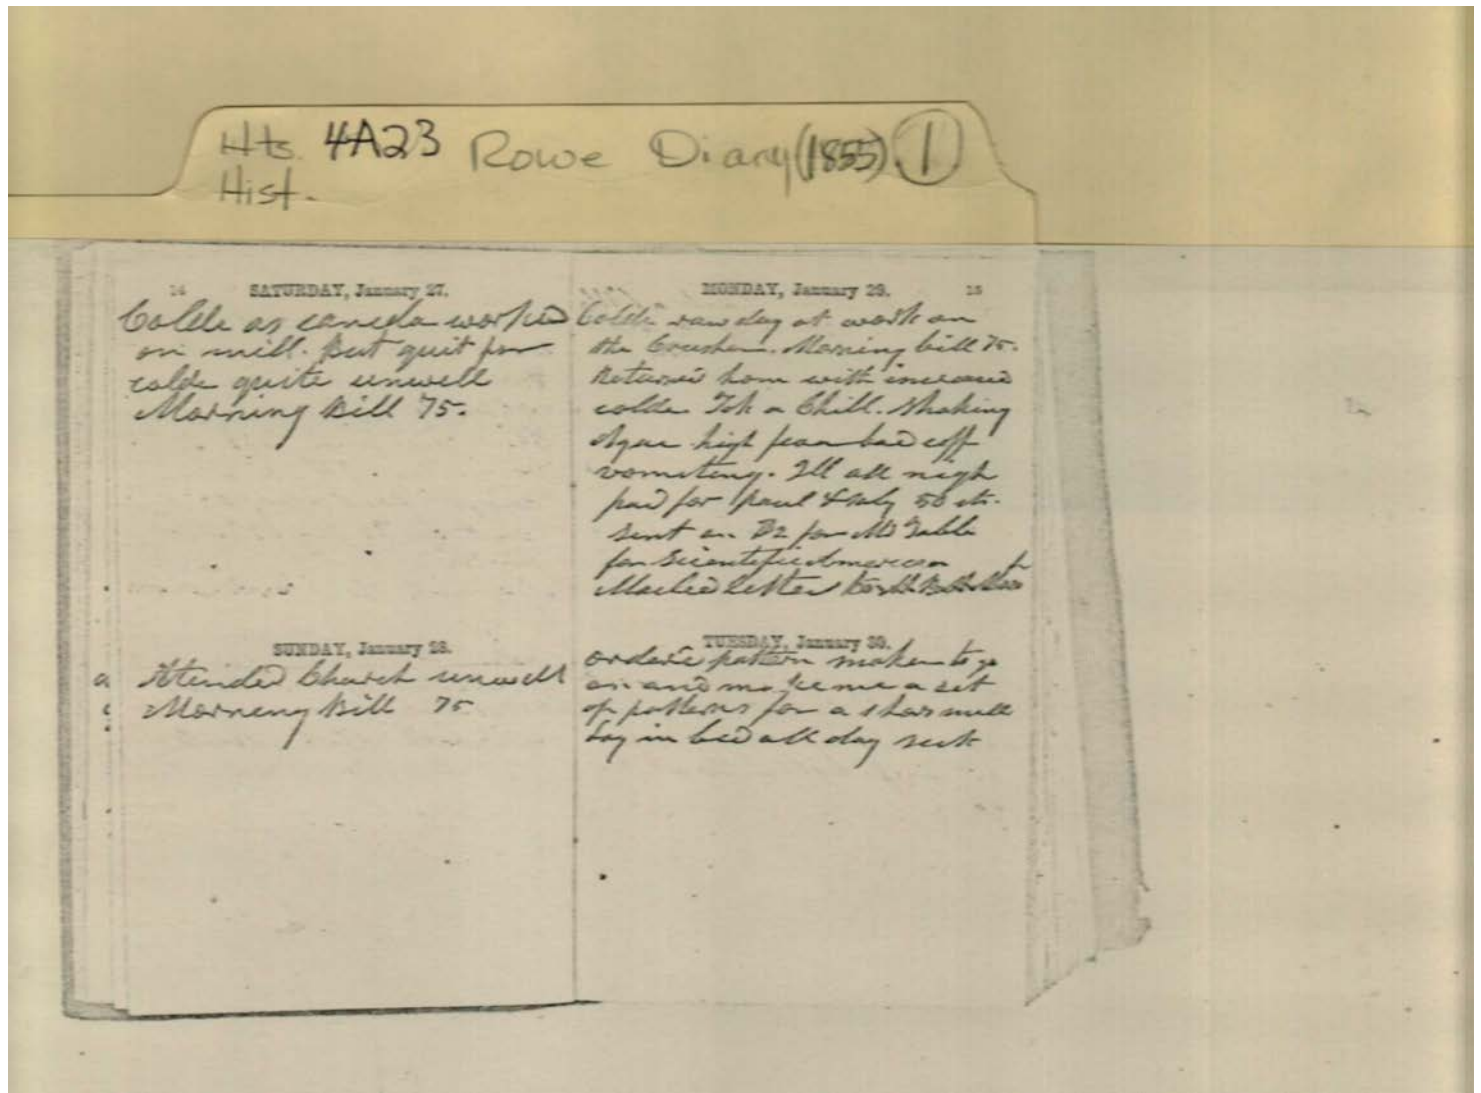 Hts. 4A23 Rowe Diary (1855) 1
Hist.
14 SATURDAY, January 27.
Colde as canada worked
on mill. But quit for
colde quite unwell
Morning Bill 75.
SUNDAY, January 28.
Atended Church unwell
Morning Bill 75
MONDAY, January 29. 15
Colde raw day at work on
the Crusher. Morning bill 75.
Returned hom with increased
colde. Tok a Chill. Shaking
Ague high bad coff
vomiting. Ill all nigh
paid for 50 cts.
sent on $2 for Mr
for Scientific American
Mailed letter
TUESDAY, January 30.
orderd pattern maker to go
on and make me a set
of patterns for a mill
Lay in bed all day sick